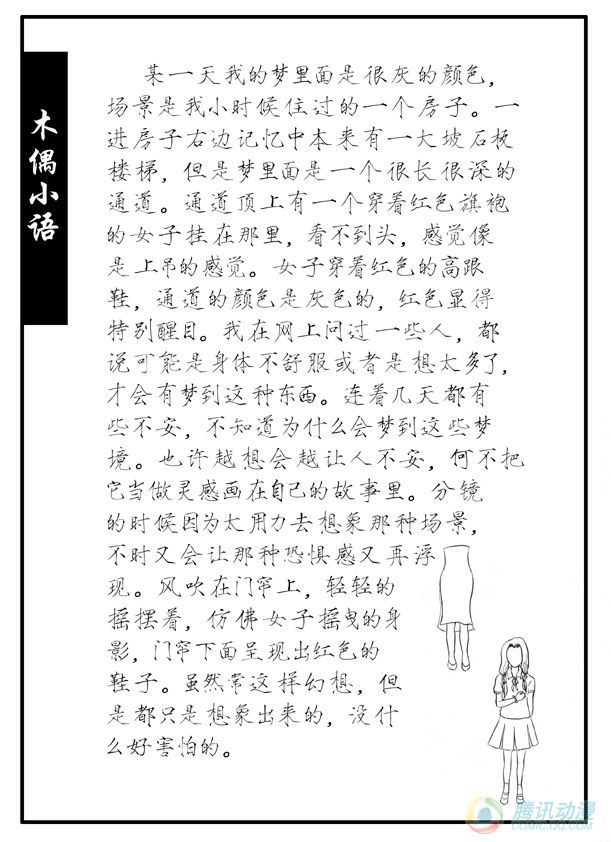 木偶小语
某一天我的梦里面是很灰的颜色，
场景是我小时候住过的一个房子。一
进房子右边记忆中本来有一大坡石板
楼梯，但是梦里面是一个很长很深的
通道。通道顶上有一个穿着红色旗袍
的女子挂在那里，看不到头，感觉像
是上吊的感觉。女子穿着红色的高跟
鞋，通道的颜色是灰色的，红色显得
特别醒目。我在网上问过一些人，都
说可能是身体不舒服或者是想太多了，
才会有梦到这种东西。连着几天都有
些不安，不知道为什么会梦到这些梦
境。也许越想会越让人不安，何不把
它当做灵感画在自己的故事里。分镜
的时候因为太用力去想象那种场景，
不时又会让那种恐惧感又再浮
现。风吹在门帘上，轻轻的
摇摆着，仿佛女子摇曳的身
影，门帘下面呈现出红色的
鞋子。虽然常这样幻想，但
是都只是想象出来的，没什
么好害怕的。
腾讯动漫
COMIC.QQ.COM